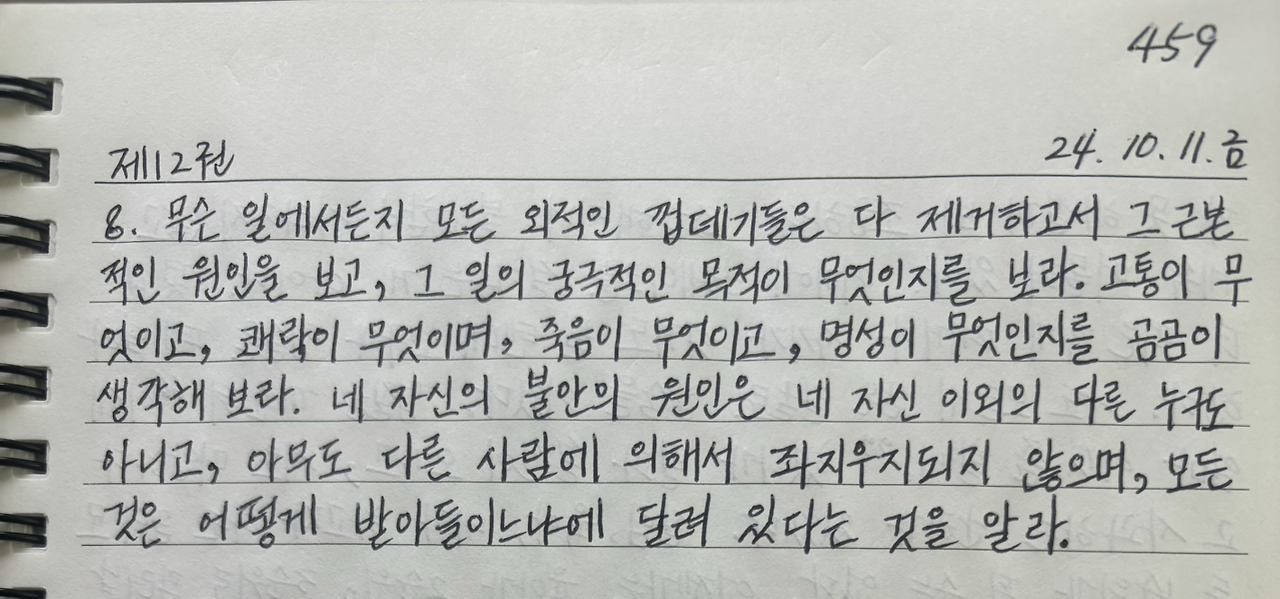 459
제12권 24. 10. 11. 금
8. 무슨 일에서든지 모든 외적인 껍데기들은 다 제거하고서 그 근본
적인 원인을 보고, 그 일의 궁극적인 목적이 무엇인지를 보라. 고통이 무
엇이고, 쾌락이 무엇이며, 죽음이 무엇이고, 명성이 무엇인지를 곰곰이
생각해 보라. 네 자신의 불안의 원인은 네 자신 이외의 다른 누구도
아니고, 아무도 다른 사람에 의해서 좌지우지되지 않으며, 모든
것은 어떻게 받아들이느냐에 달려 있다는 것을 알라.